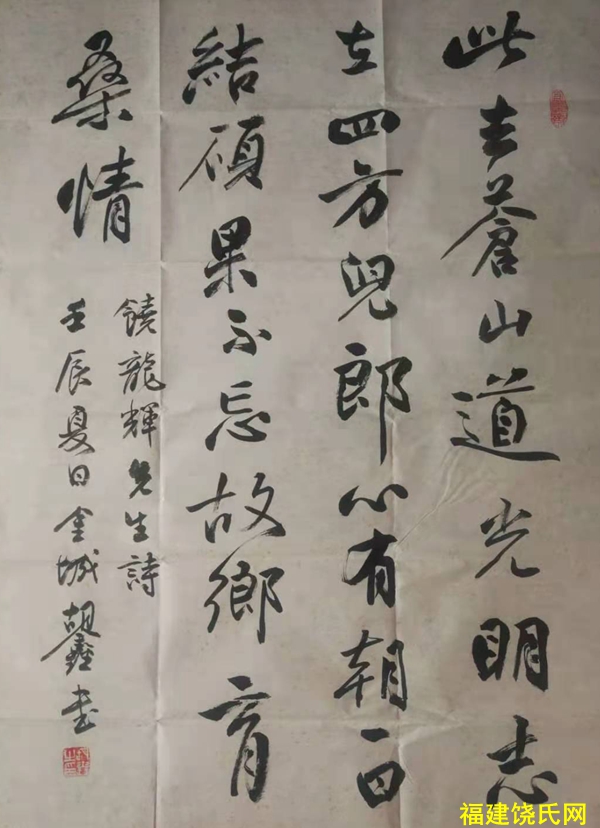 此去蒼山道光明志
在四方兒郎心有朝一日
結碩果不忘故鄉育
桑情
饒龍輝先生詩
壬辰夏日金城胡鑫书
福建饶氏网